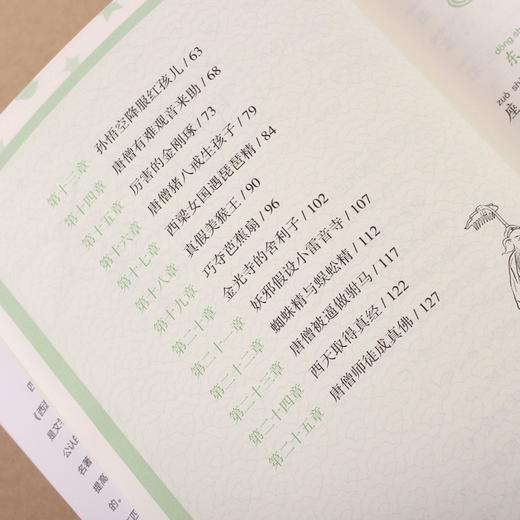 第十三章 孙悟空降服红孩儿 / 63
第十四章 唐僧有难观音来助 / 68
第十五章 厉害的金刚琢 / 73
第十六章 唐僧猪八戒生孩子 / 79
第十七章 西梁女国遇琵琶精 / 84
第十八章 真假美猴王 / 90
第十九章 巧夺芭蕉扇 / 96
第二十章 金光寺的舍利子 / 102
第二十一章 妖邪假设小雷音寺 / 107
第二十二章 蜘蛛精与蜈蚣精 / 112
第二十三章 唐僧被逼做驸马 / 117
第二十四章 西天取得真经 / 122
第二十五章 唐僧师徒成真佛 / 127
dōng
东
zuò
座
是文
公认
名著
提高
的。